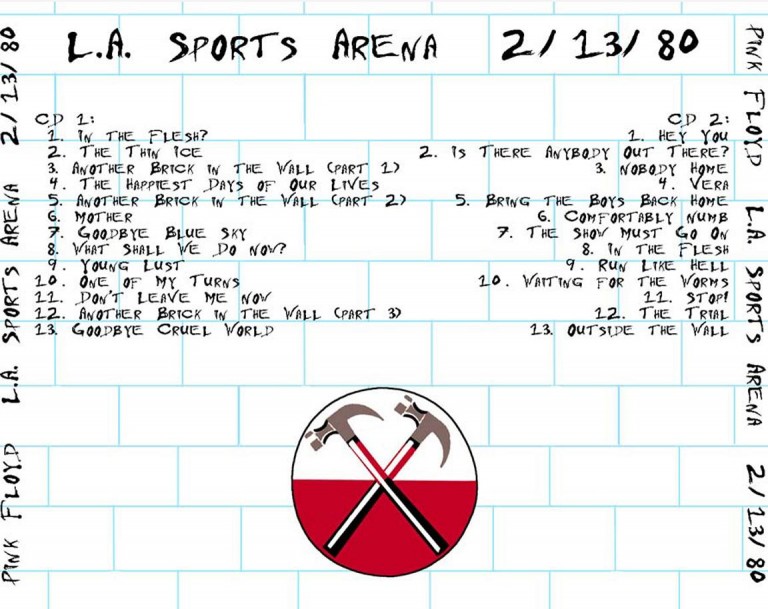 L.A. SPORTS ARENA 2/13/80
CD 1:
1. IN THE FLESH?
2. THE THIN ICE
3. ANOTHER BRICK IN THE WALL (PART 1)
4. THE HAPPIEST DAYS OF OUR LIVES
5. ANOTHER BRICK IN THE WALL (PART 2)
6. MOTHER
7. GOODBYE BLUE SKY
8. WHAT SHALL WE DO NOW?
9. YOUNG LUST
10. ONE OF MY TURNS
11. DON'T LEAVE ME NOW
12. ANOTHER BRICK IN THE WALL (PART 3)
13. GOODBYE CRUEL WORLD
CD 2:
1. HEY YOU
2. IS THERE ANYBODY OUT THERE?
3. NOBODY HOME
4. VERA
5. BRING THE BOYS BACK HOME
6. COMFORTABLY NUMB
7. THE SHOW MUST GO ON
8. IN THE FLESH
9. RUN LIKE HELL
10. WAITING FOR THE WORMS
11. STOP!
12. THE TRIAL
13. OUTSIDE THE WALL
PINK FLOYD L.A. SPORTS ARENA 2/13/80
PINK FLOYD L.A. SPORTS ARENA 2/13/80